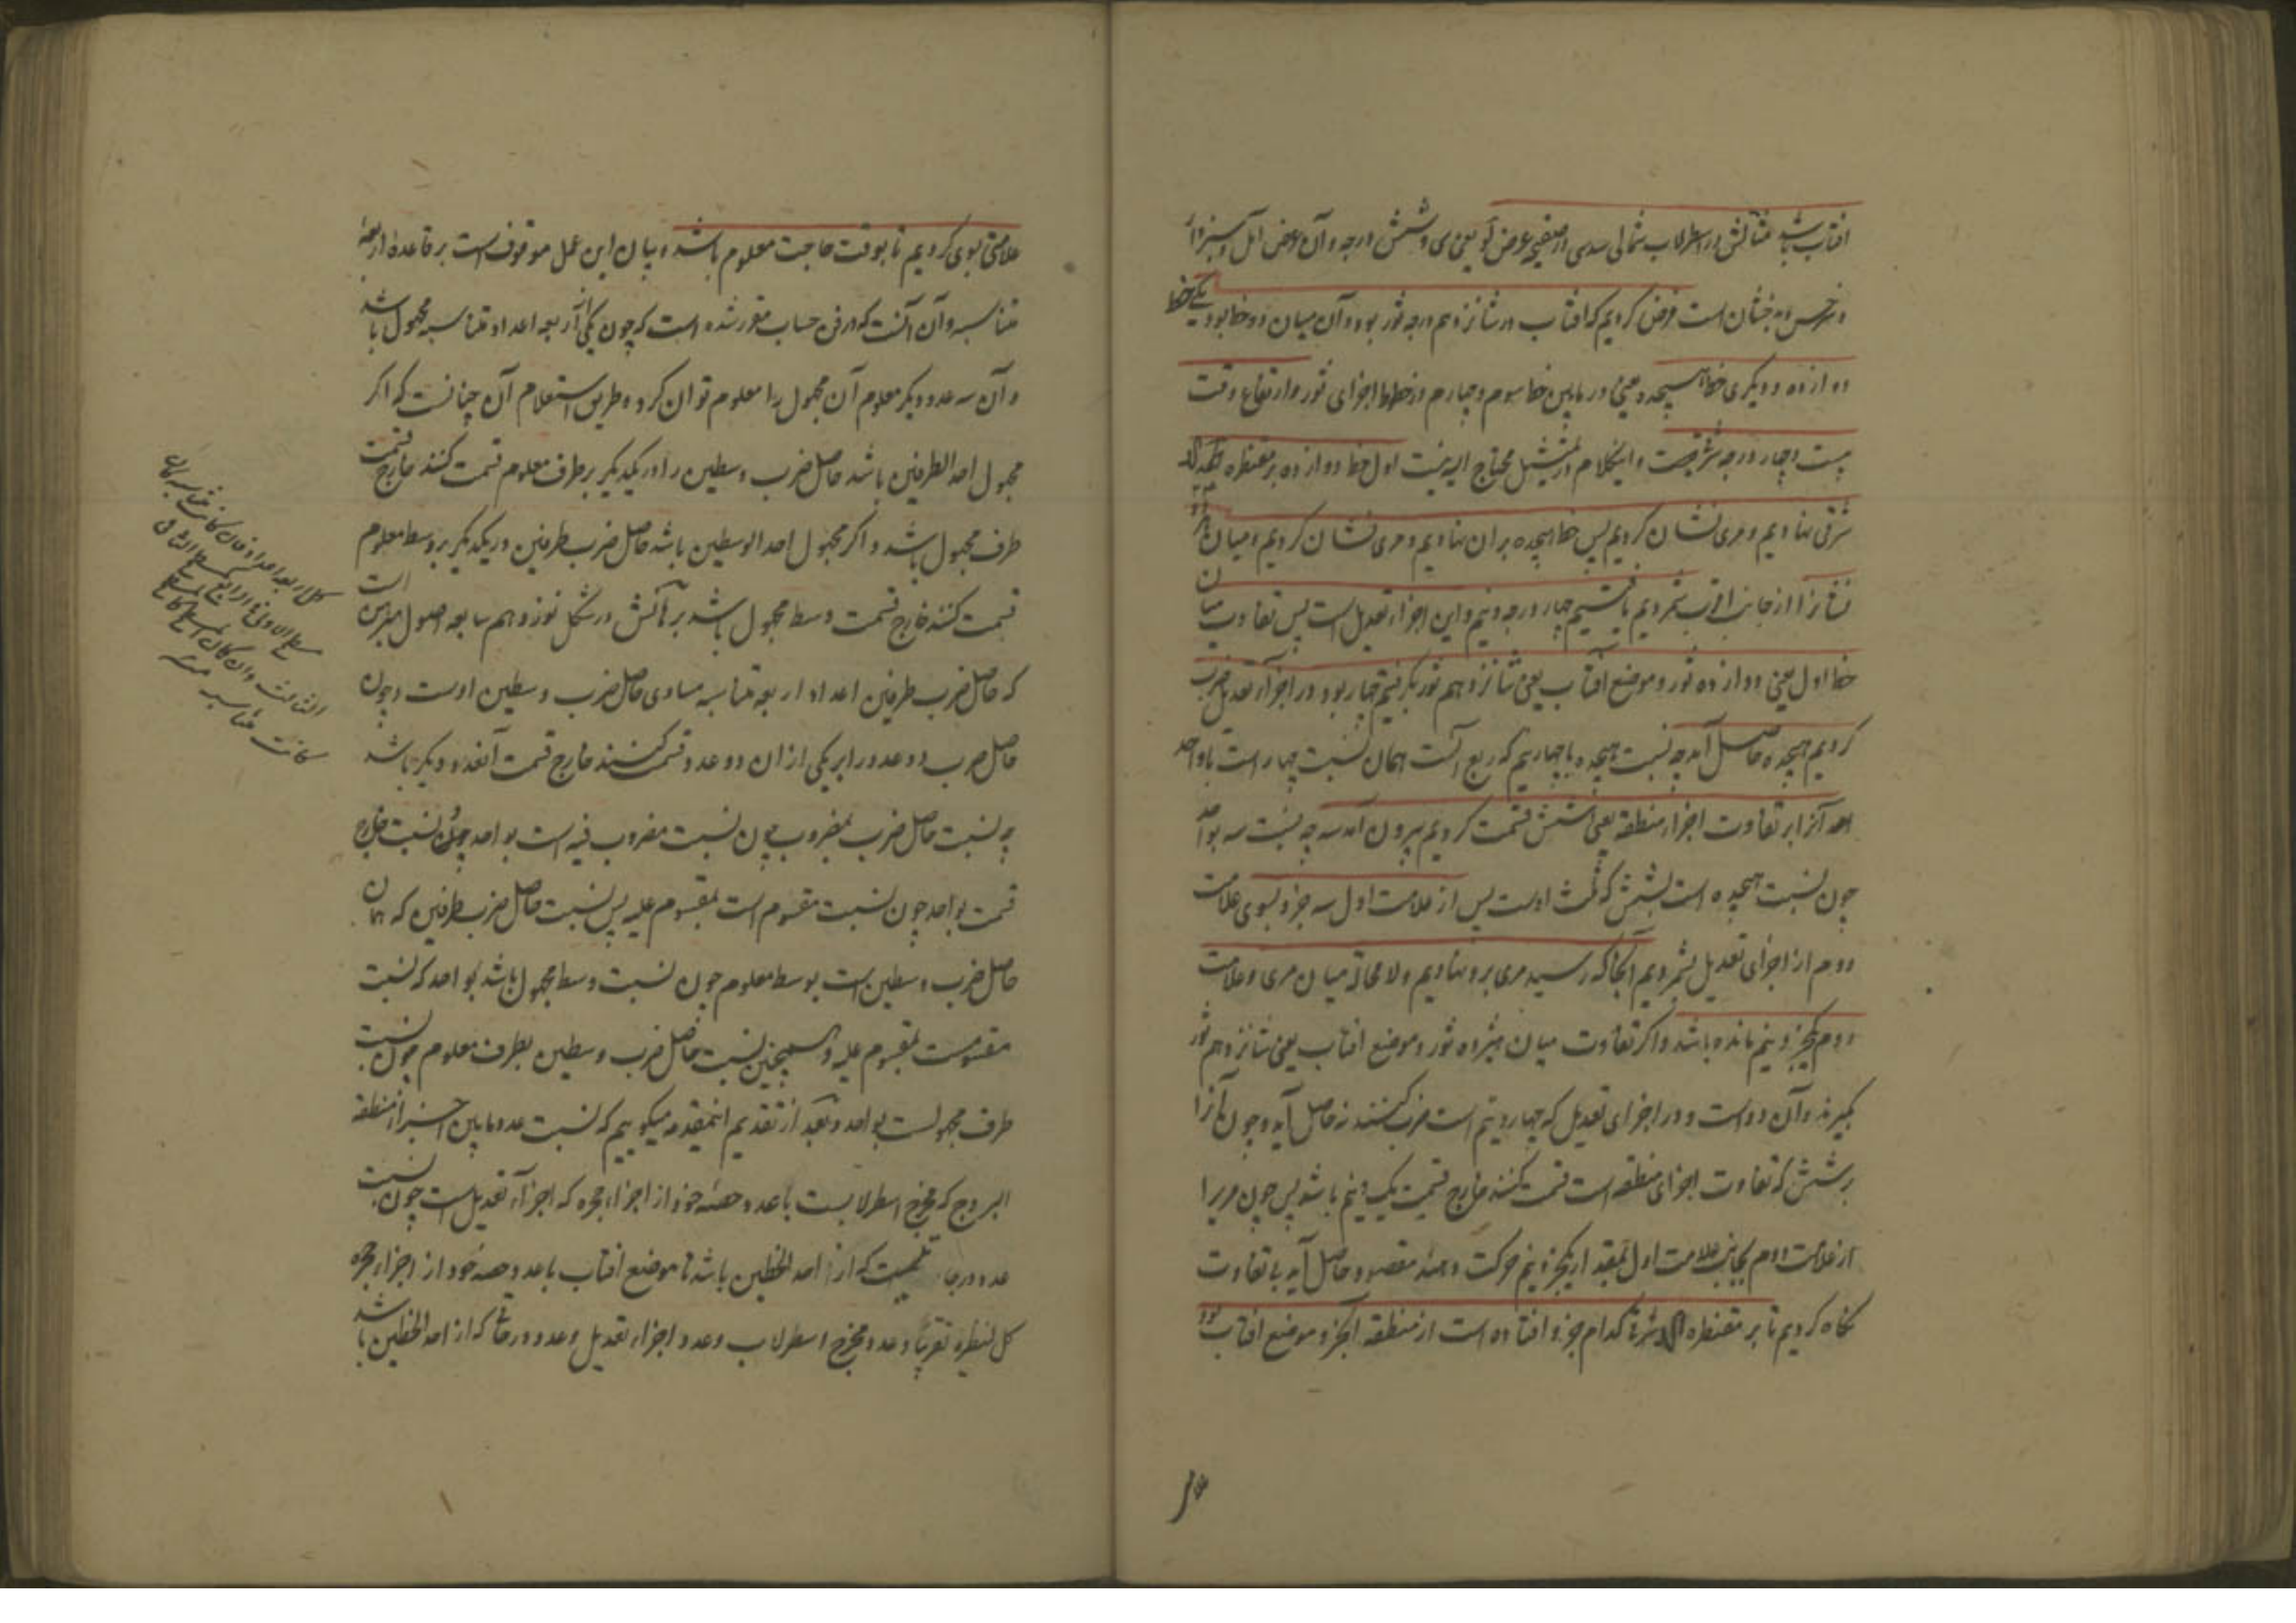 افتاب باشد مثالش در اسطرلاب شمالی سدسی از صفیحه عرض لو یعنی سی و شش درجه و آن عرض آمل و سبزوار
و سرخس و بدخشان است فرض کردیم که افتاب در شانزدهم درجه ثور بود و آن میان دو خط بود یکی خط
دوازده و دیگری خط هیجده یعنی در مابین خط سوم و چهارم از خطها اجزای ثور و ارتفاع وقت
بیست و چهار درجه شرقیست و اینکلام در تمثیل محتاج الیه نیست اول خط دوازده بر مقنطره کد
شرقی نهادیم و مری نشان کردیم پس خط هیجده بر ان نهادیم و مری نشان کردیم و میان هر دو
نشانرا از جانب اقرب شمردیم یافتیم چهار درجه و نیم و این اجزاء تعدیل است پس تفاوت میان
خط اول یعنی دوازده ثور و موضع افتاب یعنی شانزدهم ثور بگرفتیم چهار بود در اجزاء تعدیل ضرب
کردیم هیجده حاصل آمد چه نسبت هیجده با چهار نیم که ربع آنست همان نسبت چهار است با واحد
بعد آنرا بر تفاوت اجزاء منطقه یعنی شش قسمت کردیم بیرون آمد سه چه نسبت سه بواحد
چون نسبت هیجده است بشش که ثلث اوست پس از علامت اول سه جزو بسوی علامت
دوم از اجزای تعدیل بشمردیم آنجا که رسید مری برو نهادیم و لا محاله میان مری و علامت
دوم یکجزو نیم مانده باشد و اگر تفاوت میان هیژده ثور و موضع افتاب یعنی شانزدهم ثور
بگیرند و آن دو است و در اجزای تعدیل که چهار و نیم است ضرب کنند نه حاصل آید و چون آنرا
بر شش که تفاوت اجزای منطقه است قسمت کنند خارج قسمت یک و نیم باشد پس چون مریرا
از علامت دوم بجانب علامت اول بمقدار یکجزو نیم حرکت دهند مقصود حاصل آید بی تفاوت
نگاه کردیم تا بر مقنطره کد شرقی کدام جزو افتاده است از منطقه آنجزو موضع افتاب بود
علامتی
علامتی بوی کردیم تا بوقت حاجت معلوم باشد و بیان این عمل موقوف است بر قاعدۀ اربعۀ
متناسبه و آن آنست که در فن حساب مقرر شده است که چون یکی از اربعه اعداد متناسبه مجهول باشد
و آن سه عدد دیگر معلوم آن مجهول را معلوم توان کرد و طریق استعلام آن چنانست که اگر
مجهول احد الطرفین باشد حاصل ضرب وسطین را در یکدیگر بر طرف معلوم قسمت کنند خارج قسمت
طرف مجهول باشد و اگر مجهول احد الوسطین باشد حاصل ضرب طرفین در یکدیگر بر وسط معلوم
قسمت کنند خارج قسمت وسط مجهول باشد برآنکش در شکل نوزدهم سابعه اصول مبرهن است
که حاصل ضرب طرفین اعداد اربعه متناسبه مساوی حاصل ضرب وسطین اوست و چون
حاصل ضرب دو عدد را بر یکی از ان دو عدد قسمت کنند خارج قسمت آنعدد دیگر باشد
چه نسبت حاصل ضرب بمضروب چون نسبت مضروب فیه است بواحد چون نسبت خارج
قسمت بواحد چون نسبت مقسوم است بمقسوم علیه پس نسبت حاصل ضرب طرفین که همان
حاصل ضرب وسطین است بوسط معلوم چون نسبت وسط مجهول باشد بواحد که نسبت
مقسومست بمقسوم علیه و همچنین نسبت حاصل ضرب وسطین بطرف معلوم چون نسبت
طرف مجهولست بواحد و بعد از تقدیم اینمقدمه میگوییم که نسبت عدد مابین جزء از منطقه
البروج که مخرج اسطرلابست با عدد حصۀ خود از اجزاء حجره که اجزاء تعدیل است چون نسبت
عدد درجا تیست که از احد الخطین باشد تا موضع افتاب با عدد حصه خود از اجزاء حجره
کل لنظیره تقریبا و عدد مخرج اسطرلاب و عدد اجزاء تعدیل و عدد درجاتی که از احد الخطین باشد
کل اربعه اعداد فان کانت متناسبه کان
الثالث وان کان
کانت متناسبه